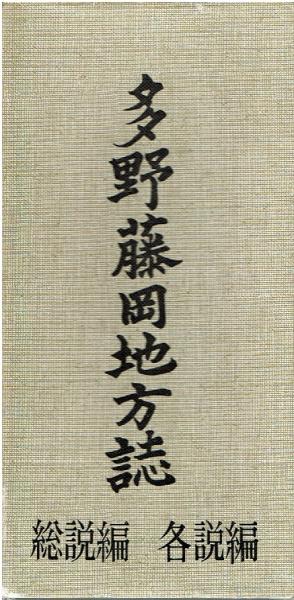 多野藤岡地方誌
総説編　各説編